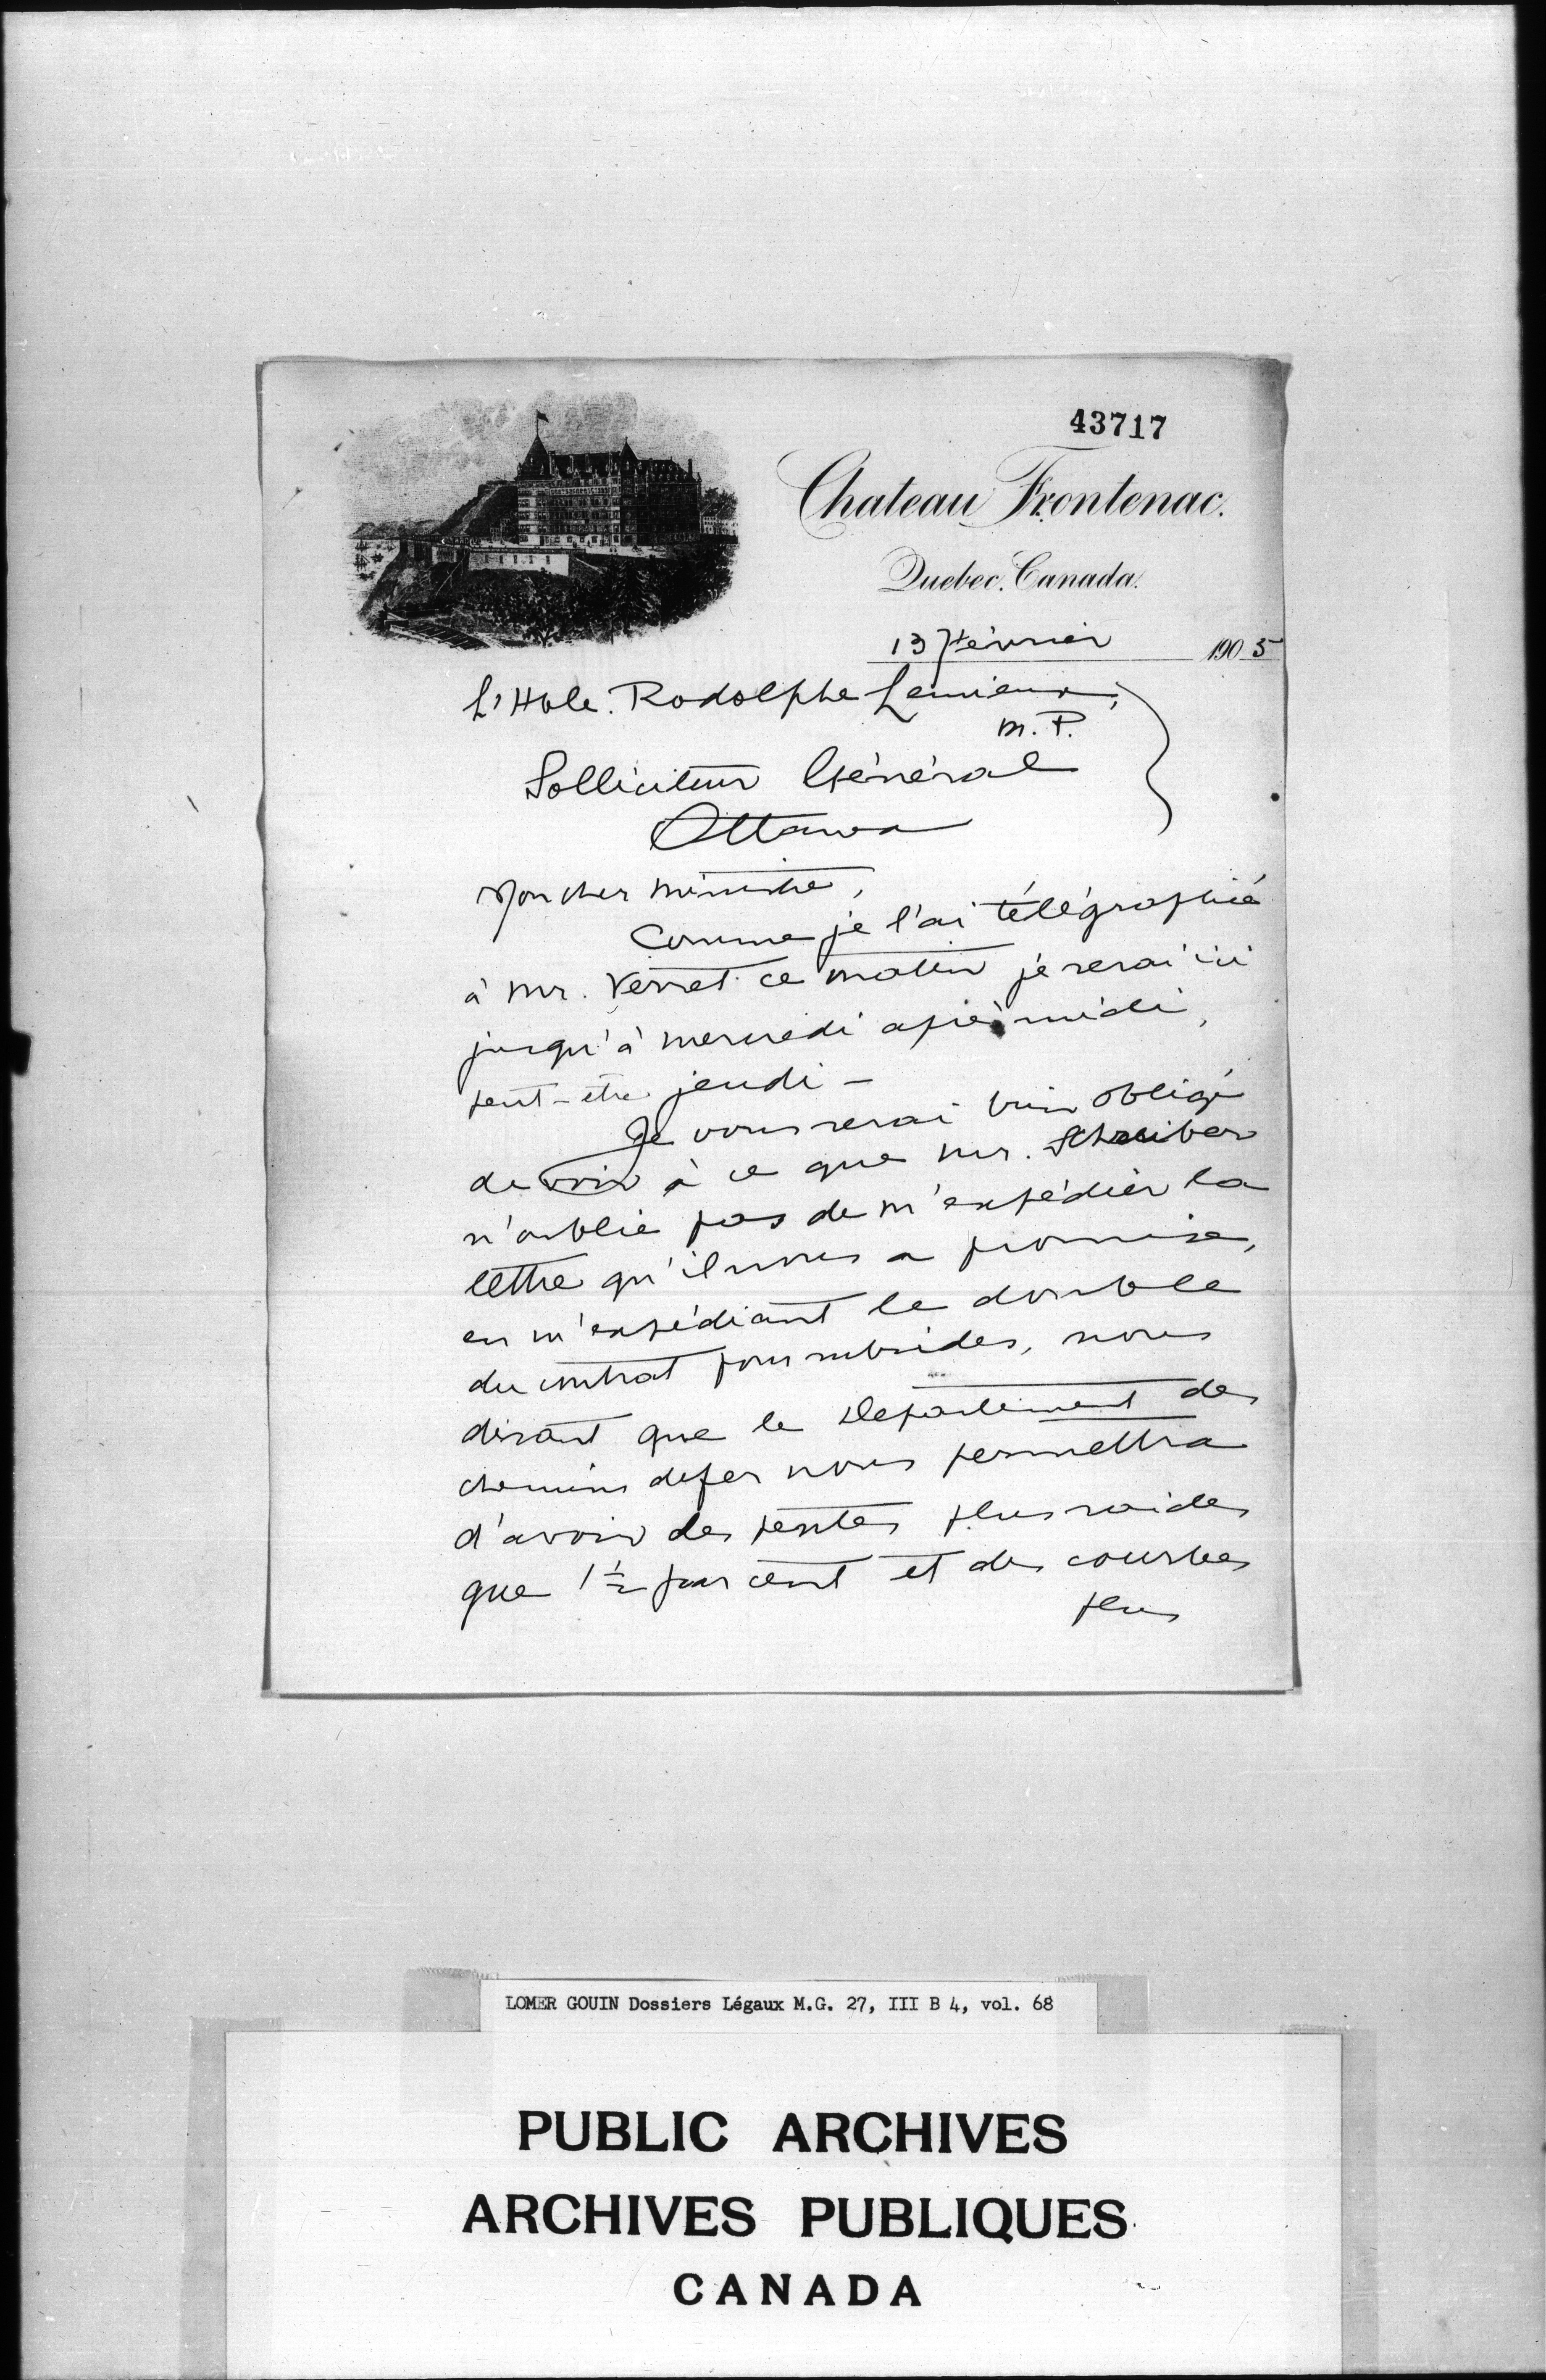 43717
Chateau Frontenac.
Quebec. Canada.
13 Février 1905
L'Hble. Rodolphe Lemieux,
M. P.
Solliciteur Général
Ottawa
Mon cher ministre,
Comme je l'ai télégraphié
à Mr. Verret ce matin je serai ici
jusqu'à mercredi après midi,
peut-être jeudi –
Je vous serai bien obligé
de voir à ce que Mr. Schreiber
n'oublie pas de m'expédier la
lettre qu'il nous a promise,
en m'expédiant le double
du contrat pour subsides, nous
disant que le Département des
chemins de fer nous permettra
d'avoir des pentes plus raides
que 1 1/2 par cent et des courbes
plus
LOMER GOUIN Dossiers Légaux M.G. 27, III B 4, vol. 68
PUBLIC ARCHIVES
ARCHIVES PUBLIQUES
CANADA